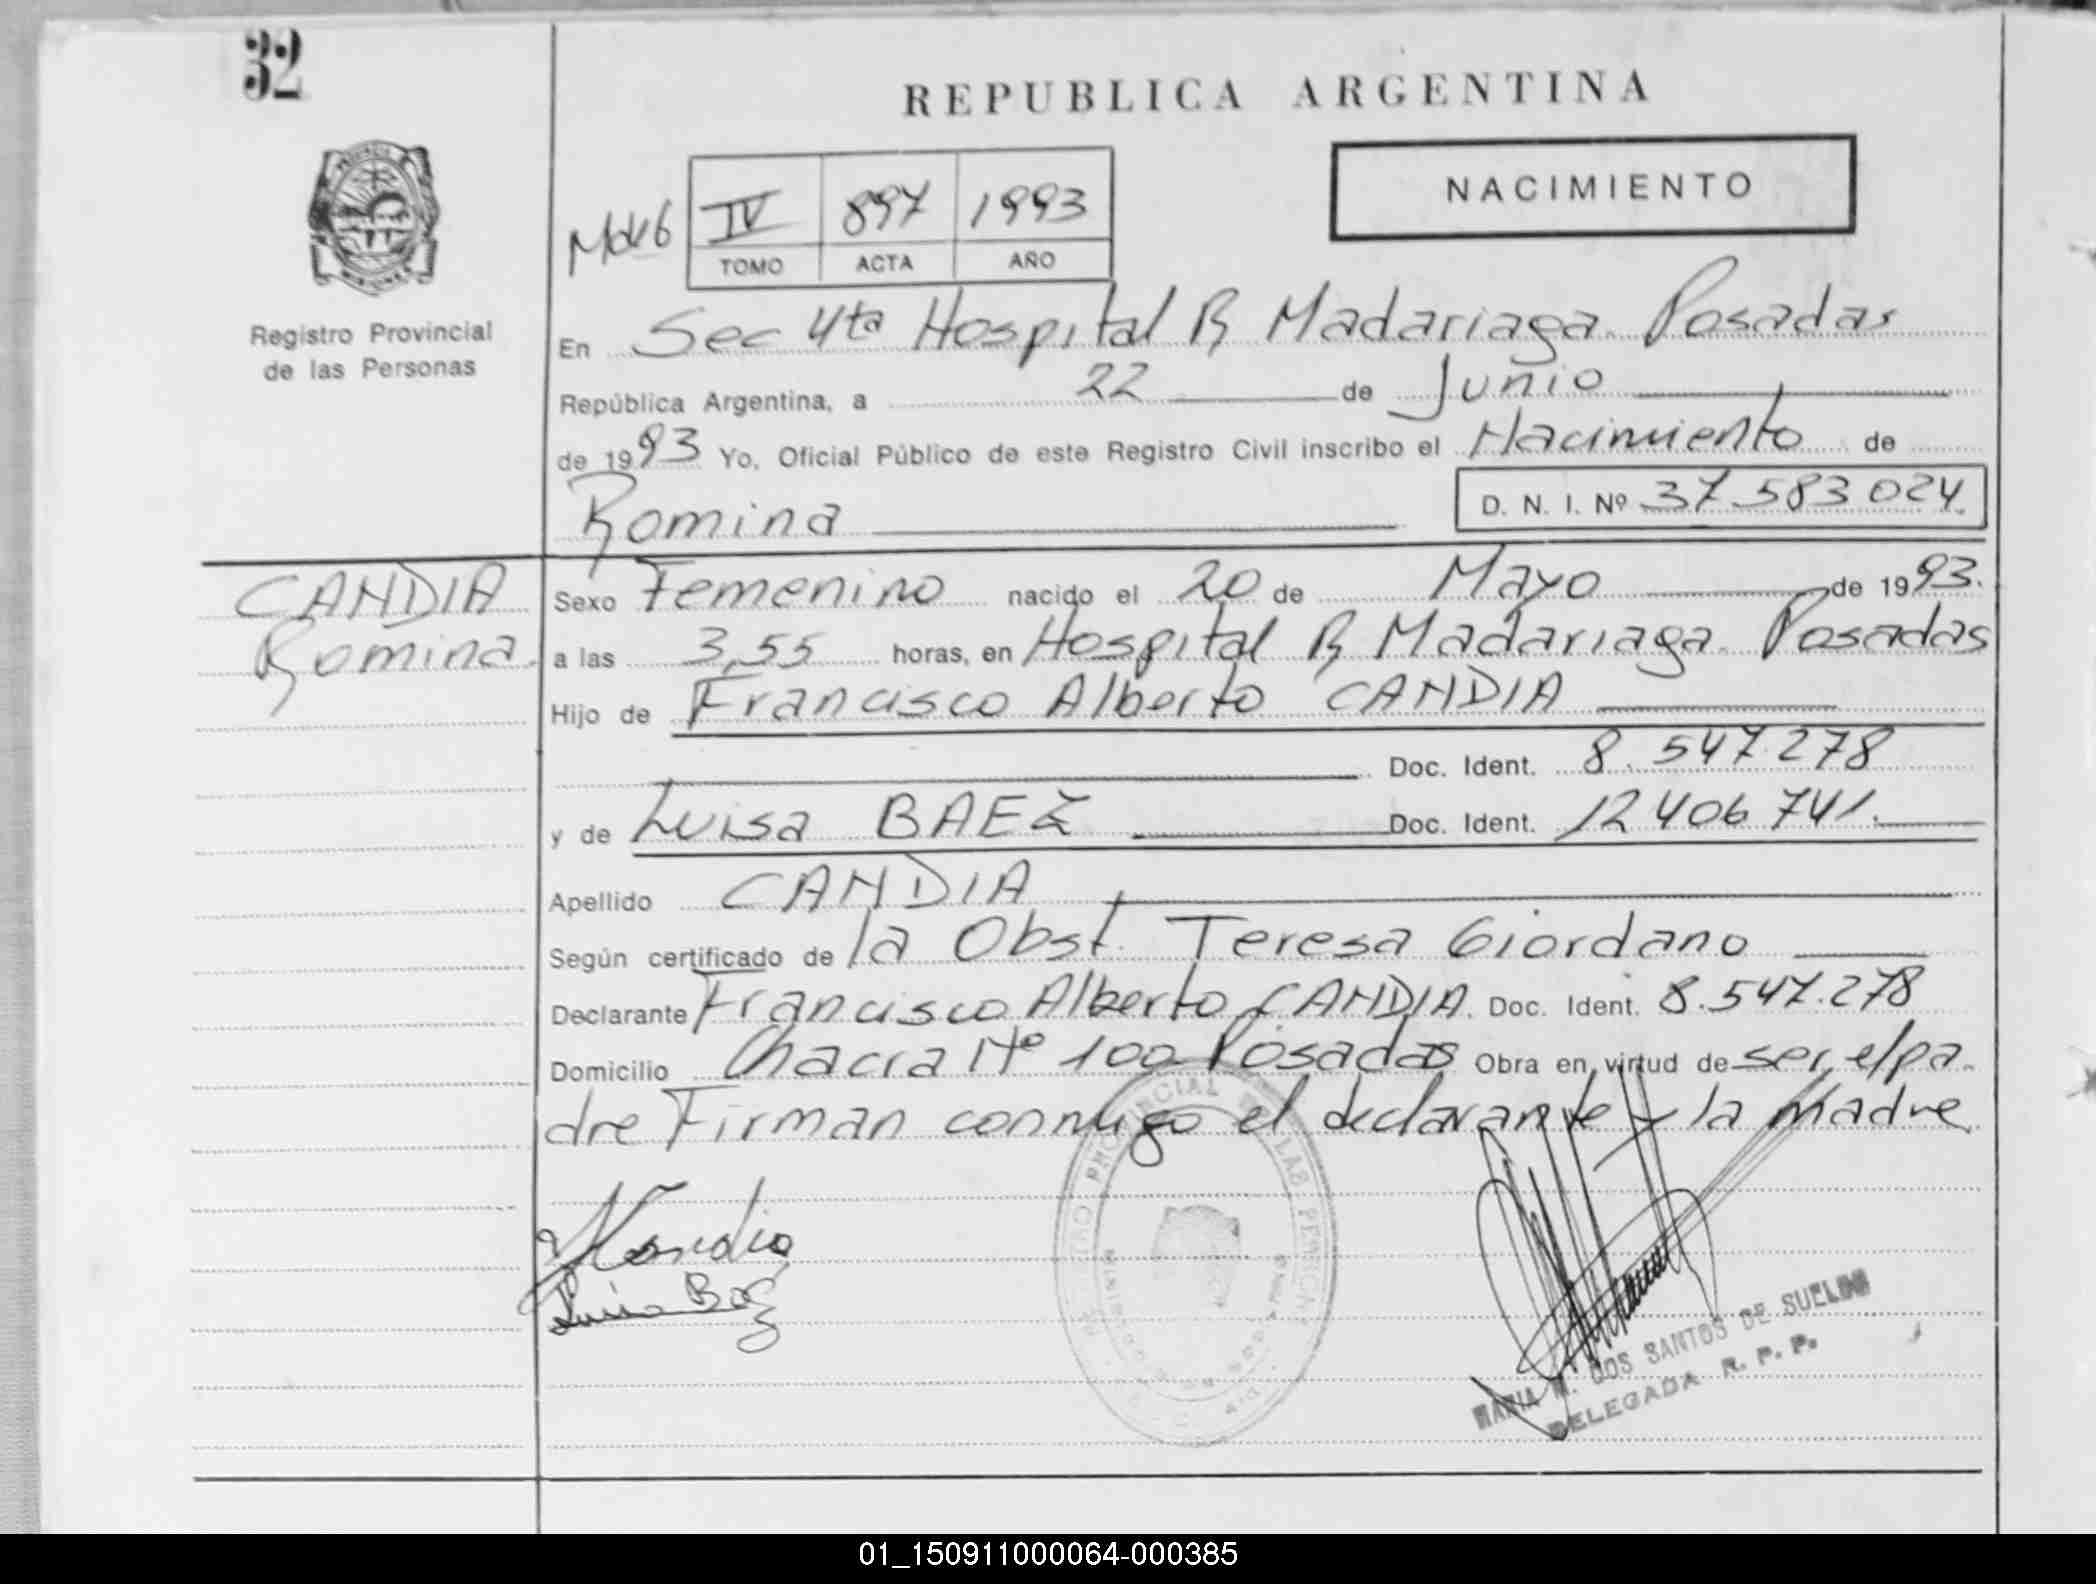 32
REPUBLICA ARGENTINA
NACIMIENTO
IV 897 1993
TOMO ACTA AÑO
Registro Provincial
de las Personas
En Sec 4ta Hospital R Madariaga. Posadas
República Argentina, a 22 de Junio
de 1993 Yo, Oficial Público de este Registro Civil inscribo el Nacimiento de
Romina
D. N. I. Nº 37.583.024.
CANDIA
Romina.
Sexo Femenino nacido el 20 de Mayo de 1993.
a las 3,55 horas, en Hospital R Madariaga. Posadas
Hijo de Francisco Alberto CANDIA
Doc. Ident. 8.547.278
y de Luisa BAEZ Doc. Ident. 12406741.
Apellido CANDIA
Según certificado de la Obst. Teresa Giordano
Declarante Francisco Alberto CANDIA. Doc. Ident. 8.547.278
Domicilio Chacra Nº 100 Posadas Obra en virtud de ser el pa-
dre Firman conmigo el declarante y la madre
Candia
Luisa Baez
MARIA M. DOS SANTOS DE
DELEGADA R. P. P.
01_150911000064-000385